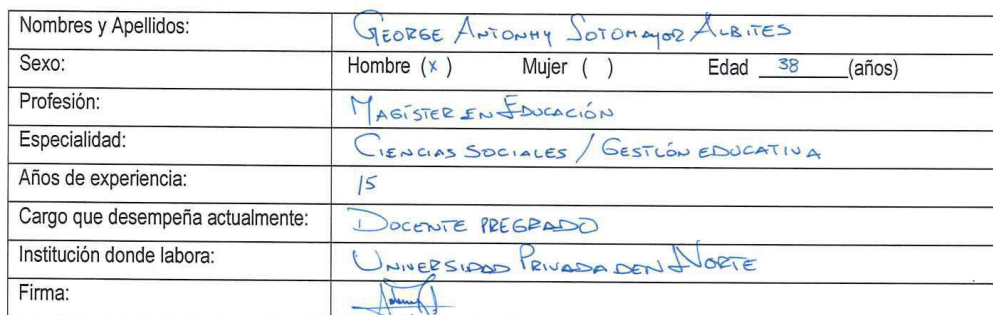 Nombres y Apellidos: GEORGE ANTONHY SOTOMAYOR ALBITES
Sexo: Hombre (x) Mujer ( ) Edad 38 (años)
Profesión: MAGÍSTER EN EDUCACIÓN
Especialidad: CIENCIAS SOCIALES / GESTIÓN EDUCATIVA
Años de experiencia: 15
Cargo que desempeña actualmente: DOCENTE PREGRADO
Institución donde labora: UNIVERSIDAD PRIVADA DEN NORTE
Firma: